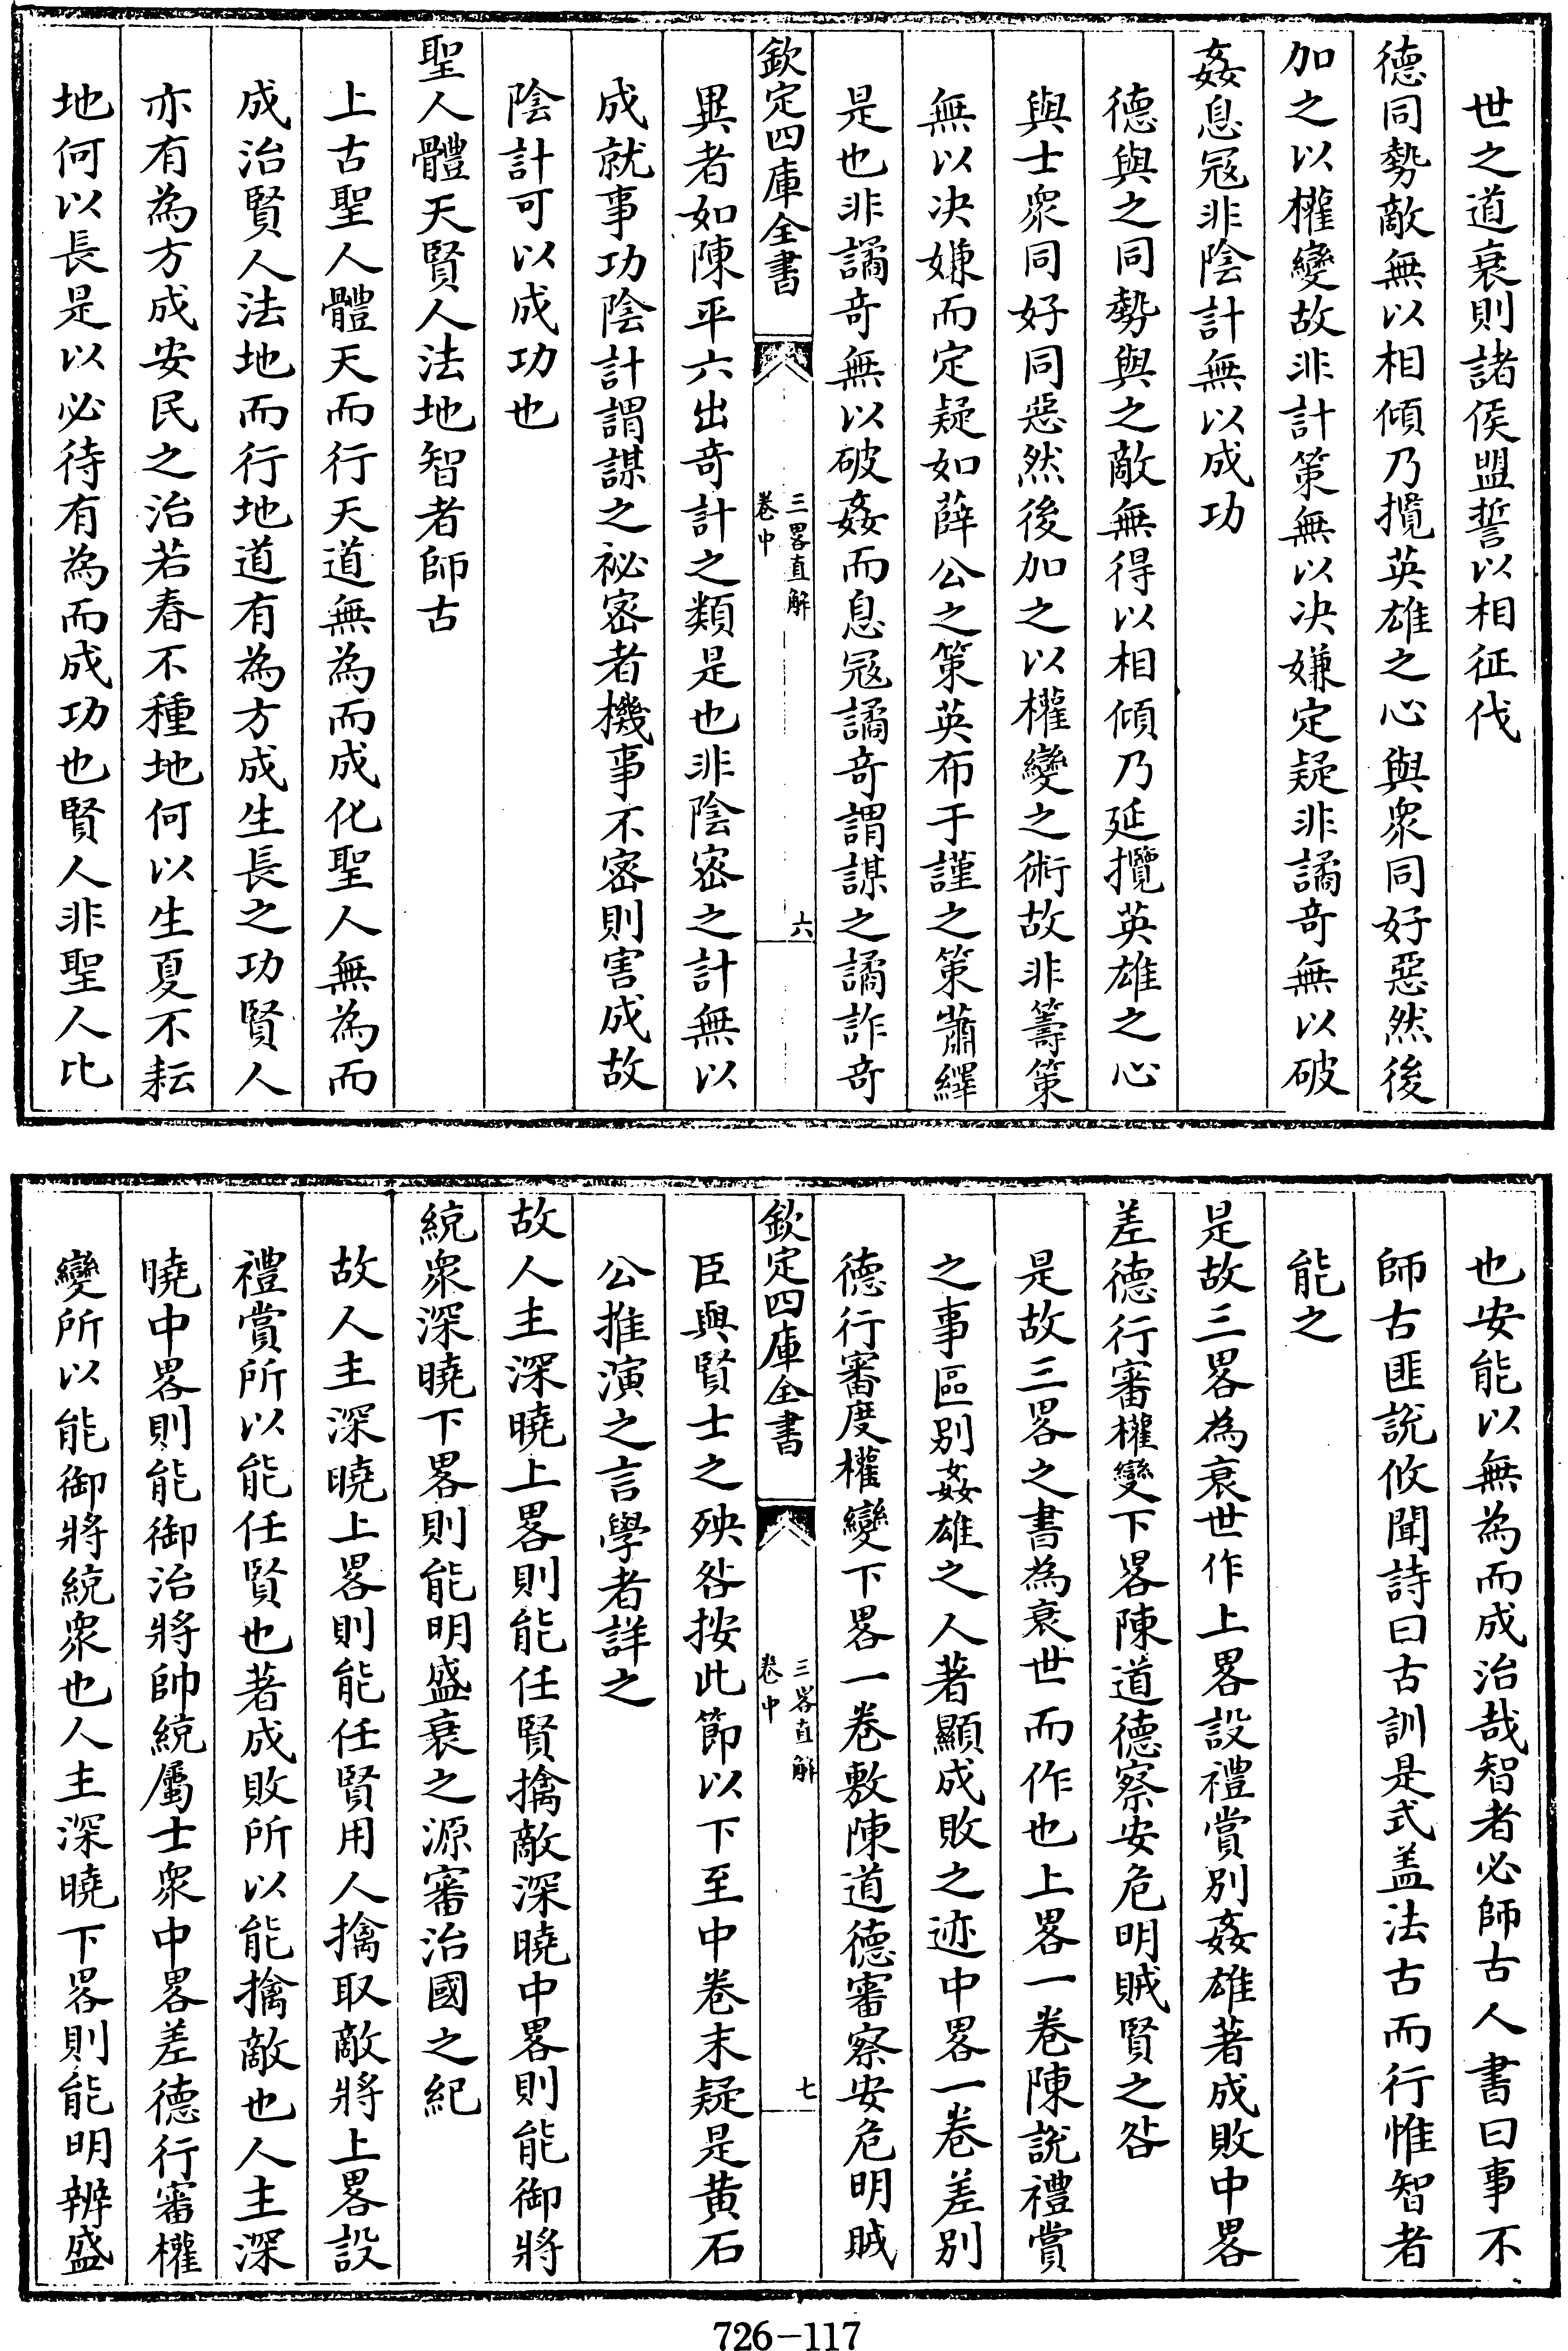 世之道衰則諸侯盟誓以相征伐
德同勢敵無以相傾乃攬英雄之心與衆同好惡然後
加之以權變故非計策無以决嫌定疑非譎竒無以破
姦息寇非陰計無以成功
德與之同勢與之敵無得以相傾乃延攬英雄之心
與士衆同好同惡然後加之以權變之術故非籌策
無以决嫌而定疑如薛公之策英布于謹之策蕭繹
是也非譎竒無以破姦而息寇譎竒謂謀之譎詐竒
欽定四庫全書
三畧直解
卷中
六
異者如陳平六出竒計之類是也非陰宻之計無以
成就事功陰計謂謀之祕宻者機事不宻則害成故
陰計可以成功也
聖人體天賢人法地智者師古
上古聖人體天而行天道無為而成化聖人無為而
成治賢人法地而行地道有為方成生長之功賢人
亦有為方成安民之治若春不種地何以生夏不耘
地何以長是以必待有為而成功也賢人非聖人比
也安能以無為而成治哉智者必師古人書曰事不
師古匪說攸聞詩曰古訓是式盖法古而行惟智者
能之
是故三畧為衰世作上畧設禮賞别姦雄著成敗中畧
差德行審權變下畧陳道德察安危明賊賢之咎
是故三畧之書為衰世而作也上畧一卷陳說禮賞
之事區别姦雄之人著顯成敗之迹中畧一卷差别
德行審度權變下畧一卷敷陳道德審察安危明賊
欽定四庫全書
三畧直解
卷中
七
臣與賢士之殃咎按此節以下至中卷末疑是黄石
公推演之言學者詳之
故人主深曉上畧則能任賢擒敵深曉中畧則能御將
統衆深曉下畧則能明盛衰之源審治國之紀
故人主深曉上畧則能任賢用人擒取敵將上畧設
禮賞所以能任賢也著成敗所以能擒敵也人主深
曉中畧則能御治將帥統屬士衆中畧差德行審權
變所以能御將統衆也人主深曉下畧則能明辨盛
726-117